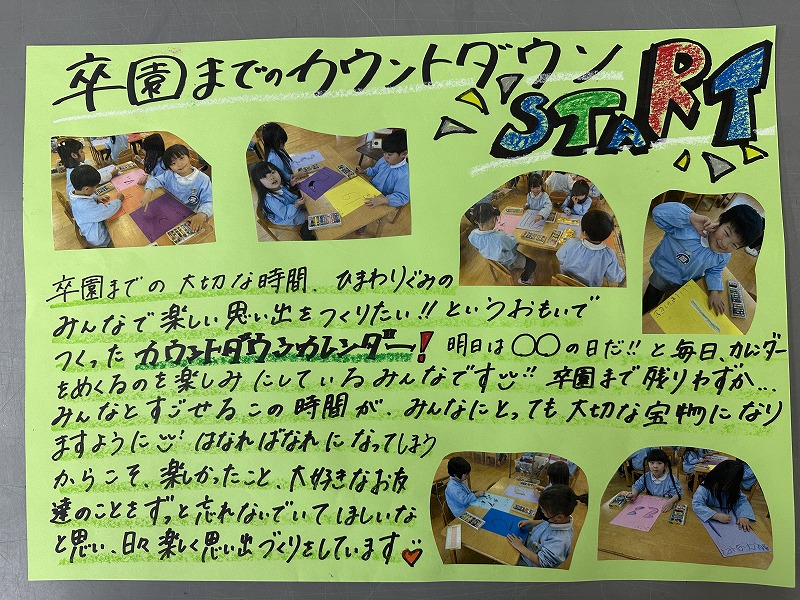 卒園までのカウントダウン
START
卒園までの大切な時間、ひまわりぐみの
みんなで楽しい思い出をつくりたい!!というおもいで
つくったカウントダウンカレンダー! 明日は〇〇の日だ!!と毎日、カレンダー
をめくるのを楽しみにしているみんなです!! 卒園まで残りわずか...
みんなとすごせるこの時間が、みんなにとっても大切な宝物になり
ますように はなればなれになってしまう
からこそ、楽しかったこと、大好きなお友
達のことをずっと忘れないでいてほしいな
と思い、日々楽しく思い出づくりをしています